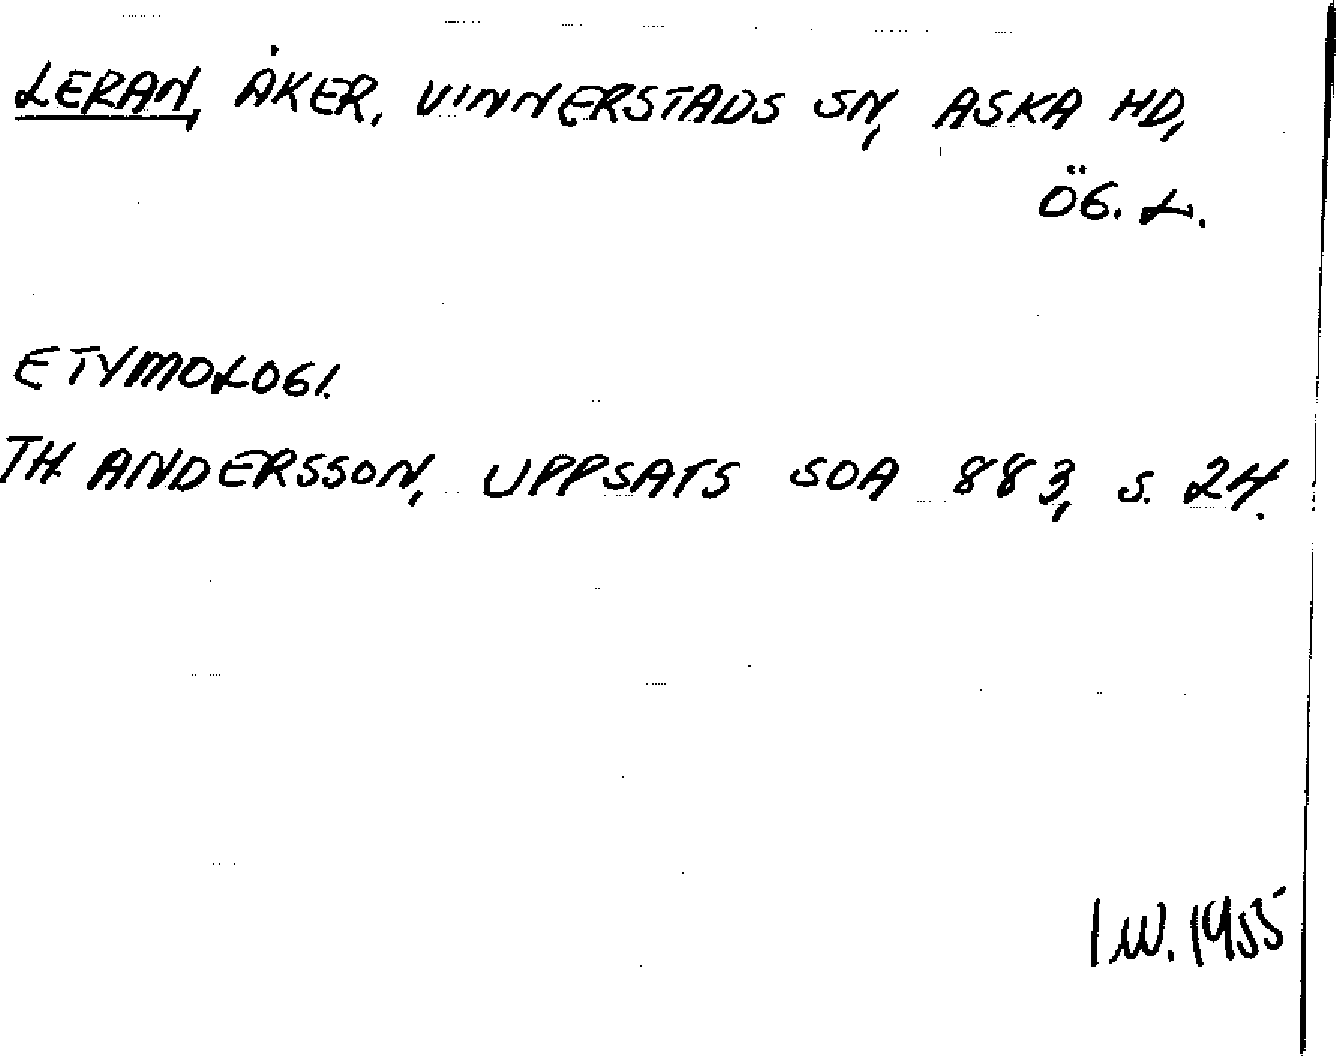 LERAN, ÅKER, VINNERSTADS SN, ASKA HD,
ÖG. L.
ETYMOLOGI.
TH. ANDERSSON, UPPSATS SOA 883, S. 24.
I W. 1955